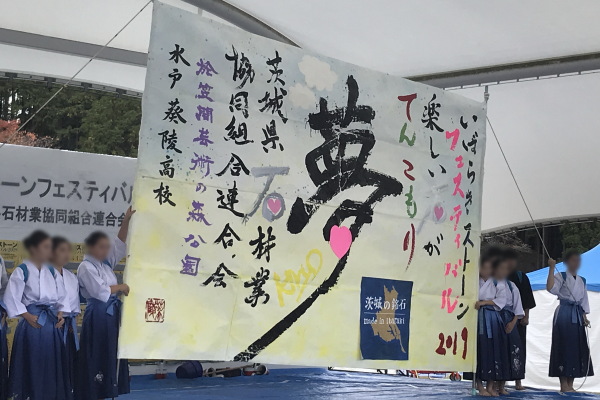 いばらきストーン
フェスティバル2019
楽しいが
てんこもり
夢
茨城県
石材業
協同組合連合会
於笠間芸術の森公園
水戸葵陵高校
茨城の銘石
made in ibaraki
トーンフェスティバル
石材業協同組合連合会